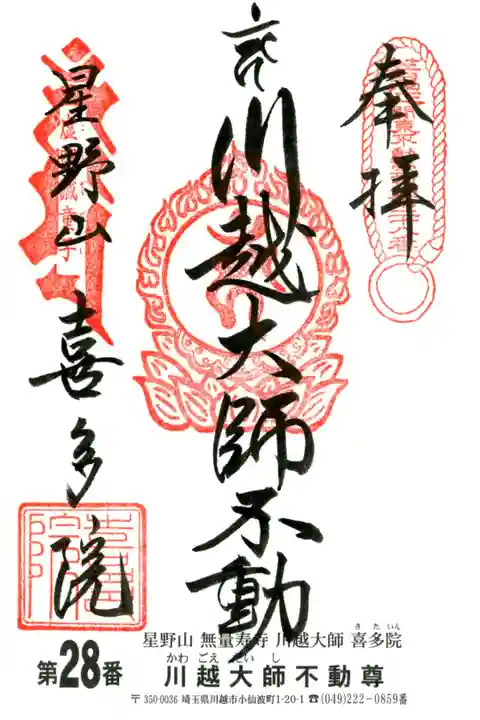 奉拝
川越大師不動
星野山 喜多院
星野山 無量寿寺 川越大師 喜多院
きたいん
第28番
かわごえだいし
川越大師不動尊
〒350-0036 埼玉県川越市小仙波町1-20-1 ☎(049)222-0859番